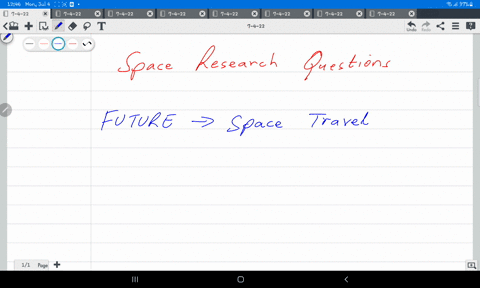 12:46 Mon, Jul 4
37%
7-4-22 7-4-22 7-4-22 7-4-22 7-4-22 7-4-22 7-4-22 7-4-22
7-4-22
Undo Redo
Space Research Questions
FUTURE → Space Travel
1/1 Page +